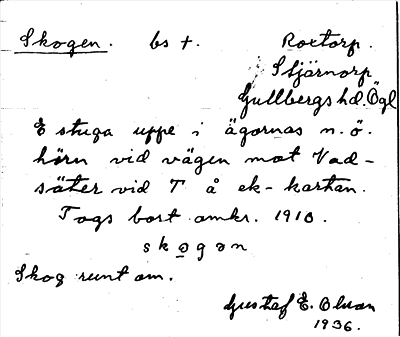 Skogen. bs †. Roxtorp.
Stjärnorp
Gullbergs hd. Ögl
E stuga uppe i ägornas n.ö.
hörn vid vägen mot Vad-
säter vid T å ek-kartan.
Togs bort omkr. 1910.
skogən
Skog runt om.
Gustaf E. Olsson
1936.